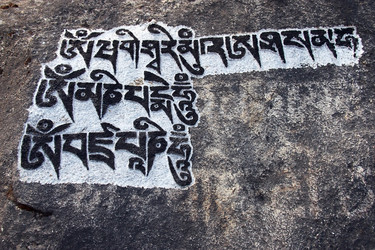 ཨོཾ་ཝ་གི་ཤྭ་རི་མུཾ
ཨོཾ་མ་ཎི་པདྨེ་ཧཱུྃ
ཨོཾ་བཛྲ་པཱ་ཎི་ཧཱུྃ